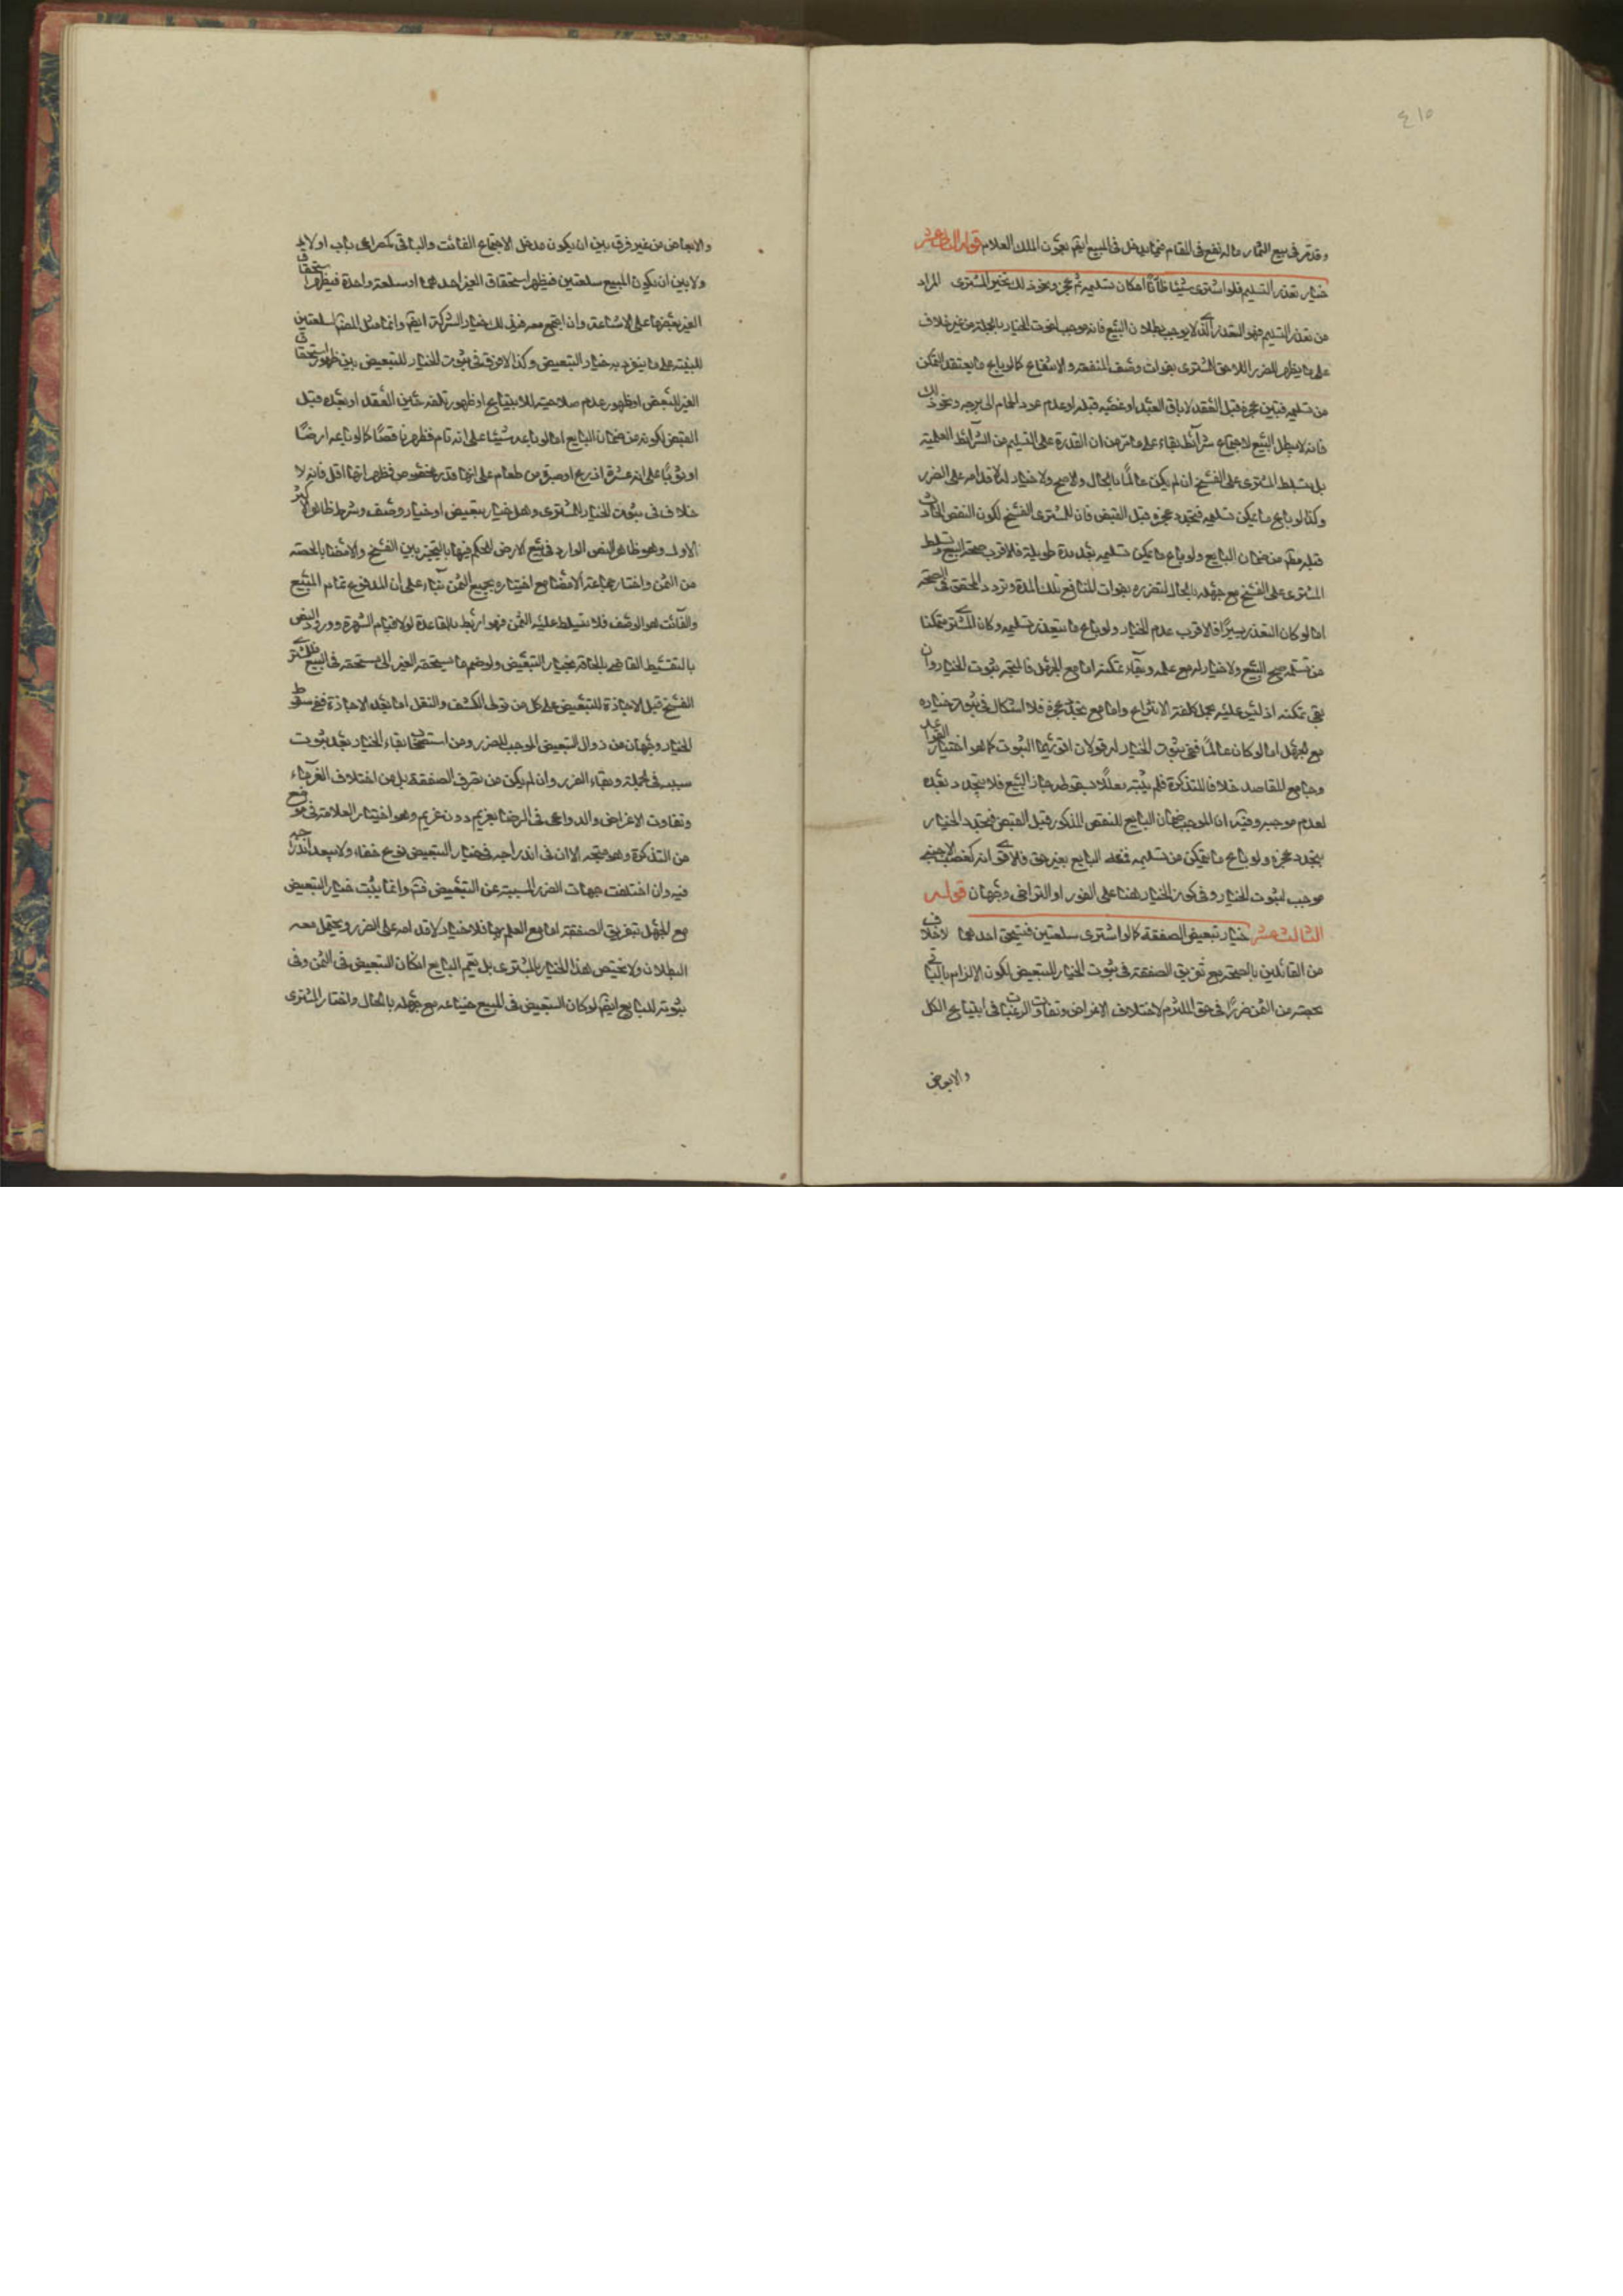 ٤١٥
وقد مر فى بيع الثمار ماله نفع فى المقام فيما يدخل فى المبيع ايضا بعون الملك العلام قوله الثانى عشر
خيار تعذر التسليم فلو اشترى شيئا ظانا امكان تسليمه ثم عجز ونحو ذلك تخير المشترى المراد
من تعذر التسليم فهو التعذر الذى لا يوجب بطلان البيع فانه موجب لثبوت الخيار بالجملة من غير خلاف
على ما يظهر للضرر اللاحق للمشترى بفوات وصف المنفعة والانتفاع كما لو باع ما يعتقد التمكن
من تسليمه فتبين عجزه قبل العقد لاباق العبد او غصبه قبله او عدم عود الحمام الى برجه ونحو ذلك
فانه لا يبطل البيع لاجتماع شرائط بقاء على ما مر من ان القدرة على التسليم من الشرائط العلمية
بل يتسلط المشترى على الفسخ ان لم يكن عالما بالحال والا صح ولا خيار له لاقدامه على الضرر
وكذا لو باع ما يمكن تسليمه فتجدد عجزه قبل القبض فان للمشترى الفسخ لكون النقص الحادث
قبله من ضمان البايع ولو باع ما يمكن تسليمه بعد مدة طويلة فالاقرب صحة البيع وتسلط
المشترى على الفسخ مع جهله بالحال لتضرره بفوات المنافع تلك المدة وتردد المحقق فى الصحة
اما لو كان التعذر يسيرا فالاقرب عدم الخيار ولو باع ما يتعذر تسليمه وكان المشترى متمكنا
من تسلمه صح البيع ولا خيار له مع علمه وبقاء تمكنه اما مع الجهل فالمتجه ثبوت الخيار وان
بقى تمكنه اذ ليس عليه تحمل كلفة الانتزاع واما مع تجدد عجزه فلا اشكال فى ثبوت خياره
مع الجهل اما لو كان عالما ففى ثبوت الخيار له قولان اقويهما الثبوت كما هو اختيار القواعد
وجامع المقاصد خلافا للتذكرة فلم يثبته معللا بسقوطه حال البيع فلا يتجدد بعده
لعدم موجبه وفيه ان الموجب ضمان البايع للنقص المذكور قبل القبض فيتجدد الخيار
بتجدد عجزه ولو باع ما يتمكن من تسليمه فمنعه البايع بغير حق فالاقوى انه كغصب الاجنبى
موجب لثبوت الخيار وفى كون الخيار هنا على الفور او التراخى وجهان قوله
الثالث عشر خيار تبعيض الصفقة كما لو اشترى سلعتين فتستحق احدهما لا خلاف
من القائلين بالصحة مع تفريق الصفقة فى ثبوت الخيار للتبعيض لكون الالزام بالباقى
بحصته من الثمن ضررا فى حق الملتزم لاختلاف الاغراض وتفاوت الرغبات فى ابتياع الكل
والابعاض
والابعاض من غير فرق بين ان يكون مدخل الاجتماع الفائت والباقى كمصراعى باب او لا
ولا بين ان يكون المبيع سلعتين فيظهر استحقاق الغير احدهما او سلعة واحدة فيظهر استحقاق
الغير بعضها على الاشاعة وان اجتمع معه فى ذلك خيار الشركة ايضا وانما مثل المصنف بالسلعتين
للتنبيه على ما ينفرد به خيار التبعيض وكذا لا فرق فى ثبوت الخيار للتبعيض بين ظهور استحقاق
الغير للبعض او ظهور عدم صلاحيته للابتياع او ظهور تلفه حين العقد او بعده قبل
القبض لكونه من ضمان البايع اما لو باعه شيئا على انه تام فظهر ناقصا كما لو باعه ارضا
او ثوبا على انه عشرة اذرع او صبرة من طعام على انها قدر مخصوص فظهر انها اقل فانه لا
خلاف فى ثبوت الخيار للمشترى وهل خيار تبعيض او خيار وصف وشرط ظاهر الاكثر
الاول وهو ظاهر النص الوارد فى بيع الارض المحكم فيها بالتخيير بين الفسخ والامضا بالحصة
من الثمن واختار جماعة الامضا مع اختياره بجميع الثمن بناء على ان المدفوع تمام المبيع
والفائت هو الوصف فلا تقسط عليه الثمن فهو اربط بالقاعدة لولا قيام الشهرة وورود النص
بالتقسيط القاضى بالحاقه بخيار التبعيض ولو ضم ما يستحقه الغير الى ما يستحقه فى البيع فللمشترى
الفسخ قبل الاجازة للتبعيض على كل من قولى الكشف والنقل اما بعد الاجازة ففى سقوط
الخيار وجهان من زوال التبعيض الموجب للضرر ومن استصحاب بقاء الخيار بعد ثبوت
سببه فى الجملة وبقاء الضرر وان لم يكن من تفرق الصفقة بل من اختلاف الغرماء
وتفاوت الاغراض والدواعى فى الرضا بغريم دون غريم وهو اختيار العلامة فى موضع
من التذكرة وهو متجه الا ان فى اندراجه فى خيار التبعيض نوع خفاء ولا يبعد اندراجه
فيه وان اختلفت جهات الضرر المسببة عن التبعيض فتم وانما يثبت خيار التبعيض
مع الجهل بتفريق الصفقة اما مع العلم بها فلا خيار لاقدامه على الضرر ويحتمل معه
البطلان ولا يختص هذا الخيار بالمشترى بل يعم البايع لمكان التبعيض فى الثمن وفى
ثبوته للبايع ايضا لو كان التبعيض فى المبيع متاعه مع جهله بالحال واختار المشترى